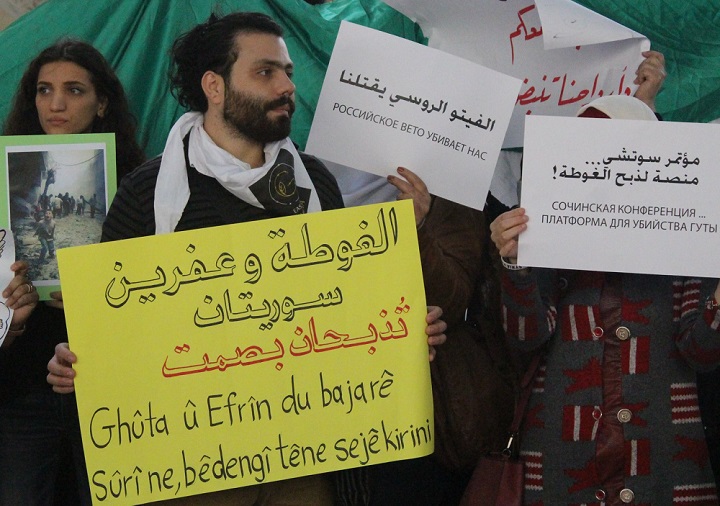 الفيتو الروسي يقتلنا
РОССИЙСКОЕ ВЕТО УБИВАЕТ НАС
مؤتمر سوتشي...
منصة لذبح الغوطة!
СОЧИНСКАЯ КОНФЕРЕНЦИЯ ...
ПЛАТФОРМА ДЛЯ УБИЙСТВА ГУТЫ
الغوطة و عفرين
سوريتان
تُذبحان بصمت
Ghûta û Efrîn du bajarê
Sûrî ne, bêdengî têne sejê kirini